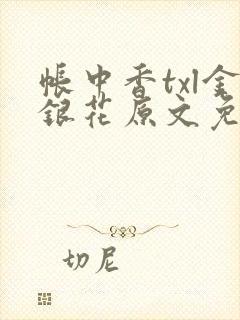 帳中香txl金
銀花原文免
切尼